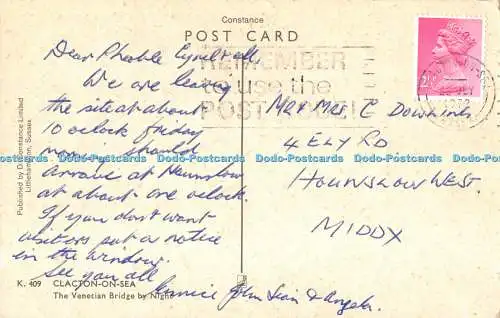 Constance
POST CARD
Dear Phoebe Cyril & all
We are leaving
the site at about
10 oclock friday
morning should
arrive at Hounslow
at about one oclock.
If you don't want
visitors put a notice
in the window.
See you all
John & Angela
REMEMBER
to use the
POST
2½
Mr & Mrs C Dowling
4 ELY RD
HOUNSLOW WEST.
MIDDX
Dodo-Postcards Dodo-Postcards Dodo-Postcards Dodo-Postcards Dodo-Postcards
Published by D. Constance Limited
Littlehampton, Sussex
K. 409 CLACTON-ON-SEA
The Venetian Bridge by Night